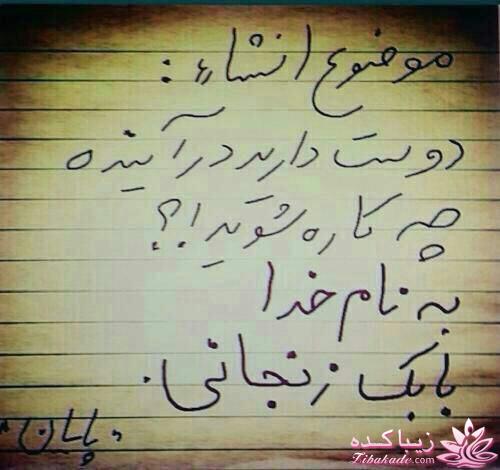 موضوع انشاء :
دوست دارید در آینده
چه کاره شوید !؟
به نام خدا
بابک زنجانی .
"پایان"
زیباکده
Zibakade.com